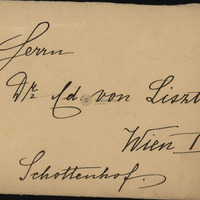 Herrn
Dr. Ed. von Liszt
Wien I
Schottenhof.